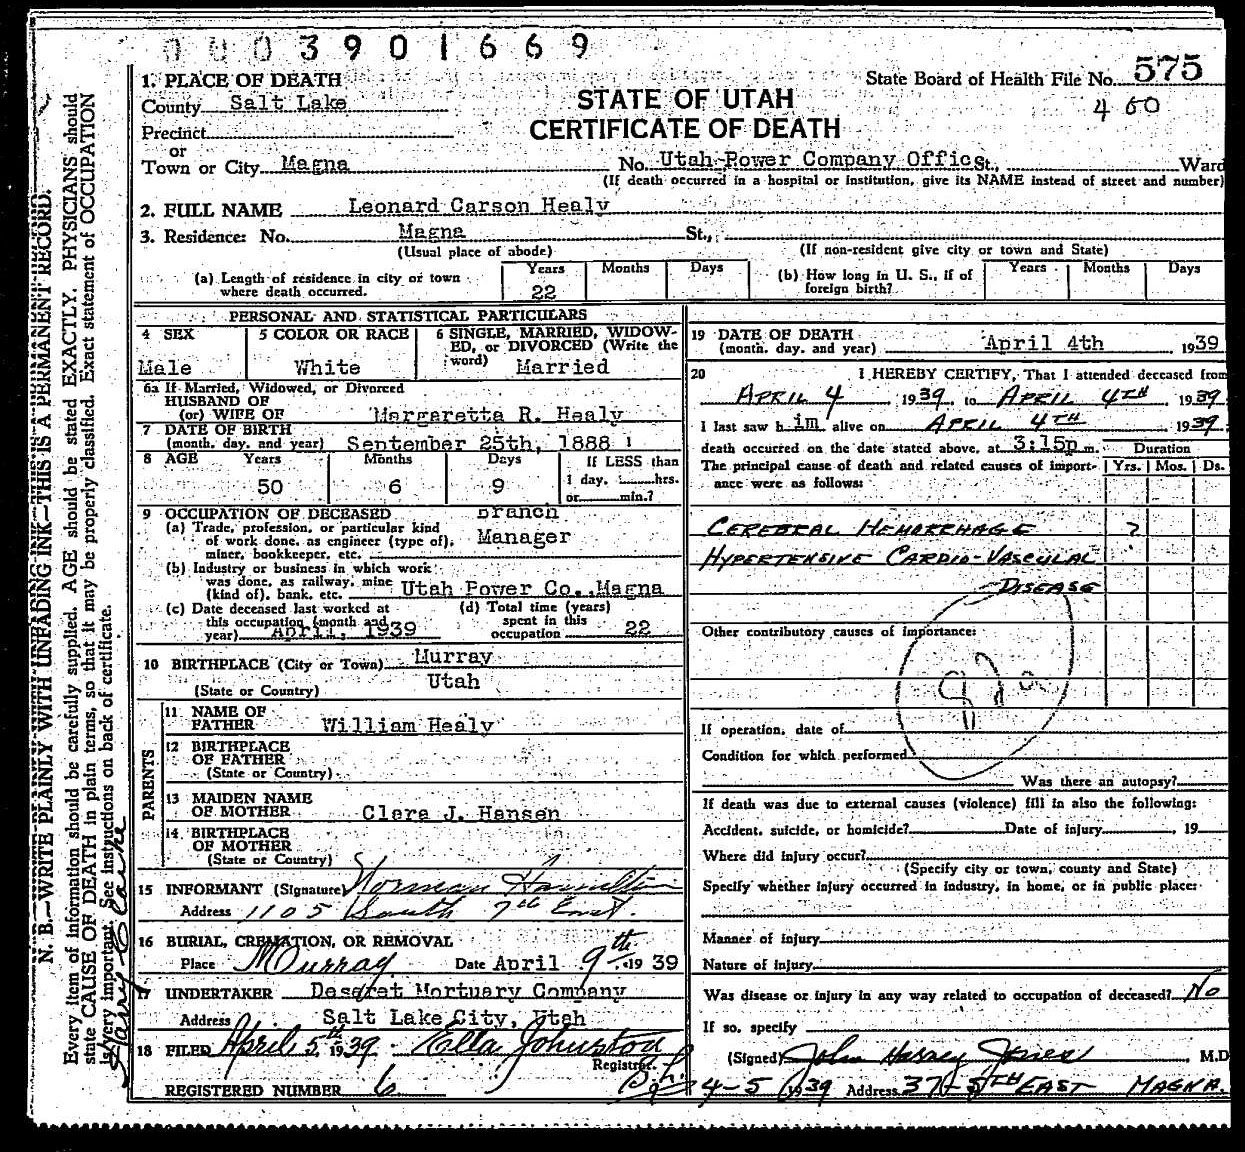 0003901669
State Board of Health File No. 575
460
STATE OF UTAH
CERTIFICATE OF DEATH
1. PLACE OF DEATH
County Salt Lake
Precinct
or
Town or City Magna No. Utah Power Company Office St., Ward
(If death occurred in a hospital or institution, give its NAME instead of street and number)
2. FULL NAME Leonard Carson Healy
3. Residence: No. Magna St.,
(Usual place of abode) (If non-resident give city or town and State)
(a) Length of residence in city or town where death occurred. Years 22 Months Days
(b) How long in U. S., if of foreign birth? Years Months Days
PERSONAL AND STATISTICAL PARTICULARS
4 SEX Male
5 COLOR OR RACE White
6 SINGLE, MARRIED, WIDOWED, or DIVORCED (Write the word) Married
6a If Married, Widowed, or Divorced
HUSBAND OF
(or) WIFE OF Margaretta R. Healy
7 DATE OF BIRTH
(month, day, and year) September 25th, 1888
8 AGE Years 50 Months 6 Days 9 If LESS than 1 day, hrs. or min.?
9 OCCUPATION OF DECEASED Branch
(a) Trade, profession, or particular kind of work done, as engineer (type of), miner, bookkeeper, etc. Manager
(b) Industry or business in which work was done, as railway, mine (kind of), bank, etc. Utah Power Co., Magna
(c) Date deceased last worked at this occupation (month and year) April, 1939
(d) Total time (years) spent in this occupation 22
10 BIRTHPLACE (City or Town) Murray
(State or Country) Utah
PARENTS
11 NAME OF FATHER William Healy
12 BIRTHPLACE OF FATHER
(State or Country)
13 MAIDEN NAME OF MOTHER Clara J. Hansen
14 BIRTHPLACE OF MOTHER
(State or Country)
15 INFORMANT (Signature) Norman Hamilton
Address 1105 South 7th East.
16 BURIAL, CREMATION, OR REMOVAL
Place Murray Date April 9th 1939
17 UNDERTAKER Deseret Mortuary Company
Address Salt Lake City, Utah
18 FILED April 5th, 1939 Ella Johnston
Registrar.
REGISTERED NUMBER 6
19 DATE OF DEATH
(month, day, and year) April 4th 1939
20 I HEREBY CERTIFY, That I attended deceased from
APRIL 4 1939, to APRIL 4TH 1939
I last saw him alive on APRIL 4TH 1939
death occurred on the date stated above, at 3:15p m.
Duration
Yrs. Mos. Ds.
The principal cause of death and related causes of importance were as follows:
CEREBRAL HEMORRHAGE ?
HYPERTENSIVE CARDIO-VASCULAR
DISEASE
Other contributory causes of importance:
If operation, date of
Condition for which performed
Was there an autopsy?
If death was due to external causes (violence) fill in also the following:
Accident, suicide, or homicide? Date of injury , 19
Where did injury occur?
(Specify city or town, county and State)
Specify whether injury occurred in industry, in home, or in public place:
Manner of injury
Nature of injury
Was disease or injury in any way related to occupation of deceased? No
If so, specify
(Signed) John Harvey Jones, M.D
4-5 1939 Address 37-5TH EAST MAGNA.
N. B.—WRITE PLAINLY WITH UNFADING INK—THIS IS A PERMANENT RECORD.
Every item of information should be carefully supplied. AGE should be stated EXACTLY. PHYSICIANS should
state CAUSE OF DEATH in plain terms, so that it may be properly classified. Exact statement of OCCUPATION
is very important. See instructions on back of certificate.